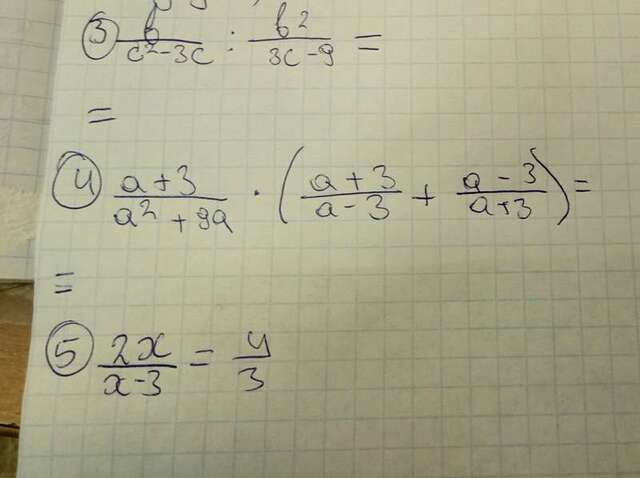 ③ в/(c²-3c) : в²/(3c-9) =
=
④ (a+3)/(a²+9a) · ((a+3)/(a-3) + (a-3)/(a+3)) =
=
⑤ 2x/(x-3) = 4/3